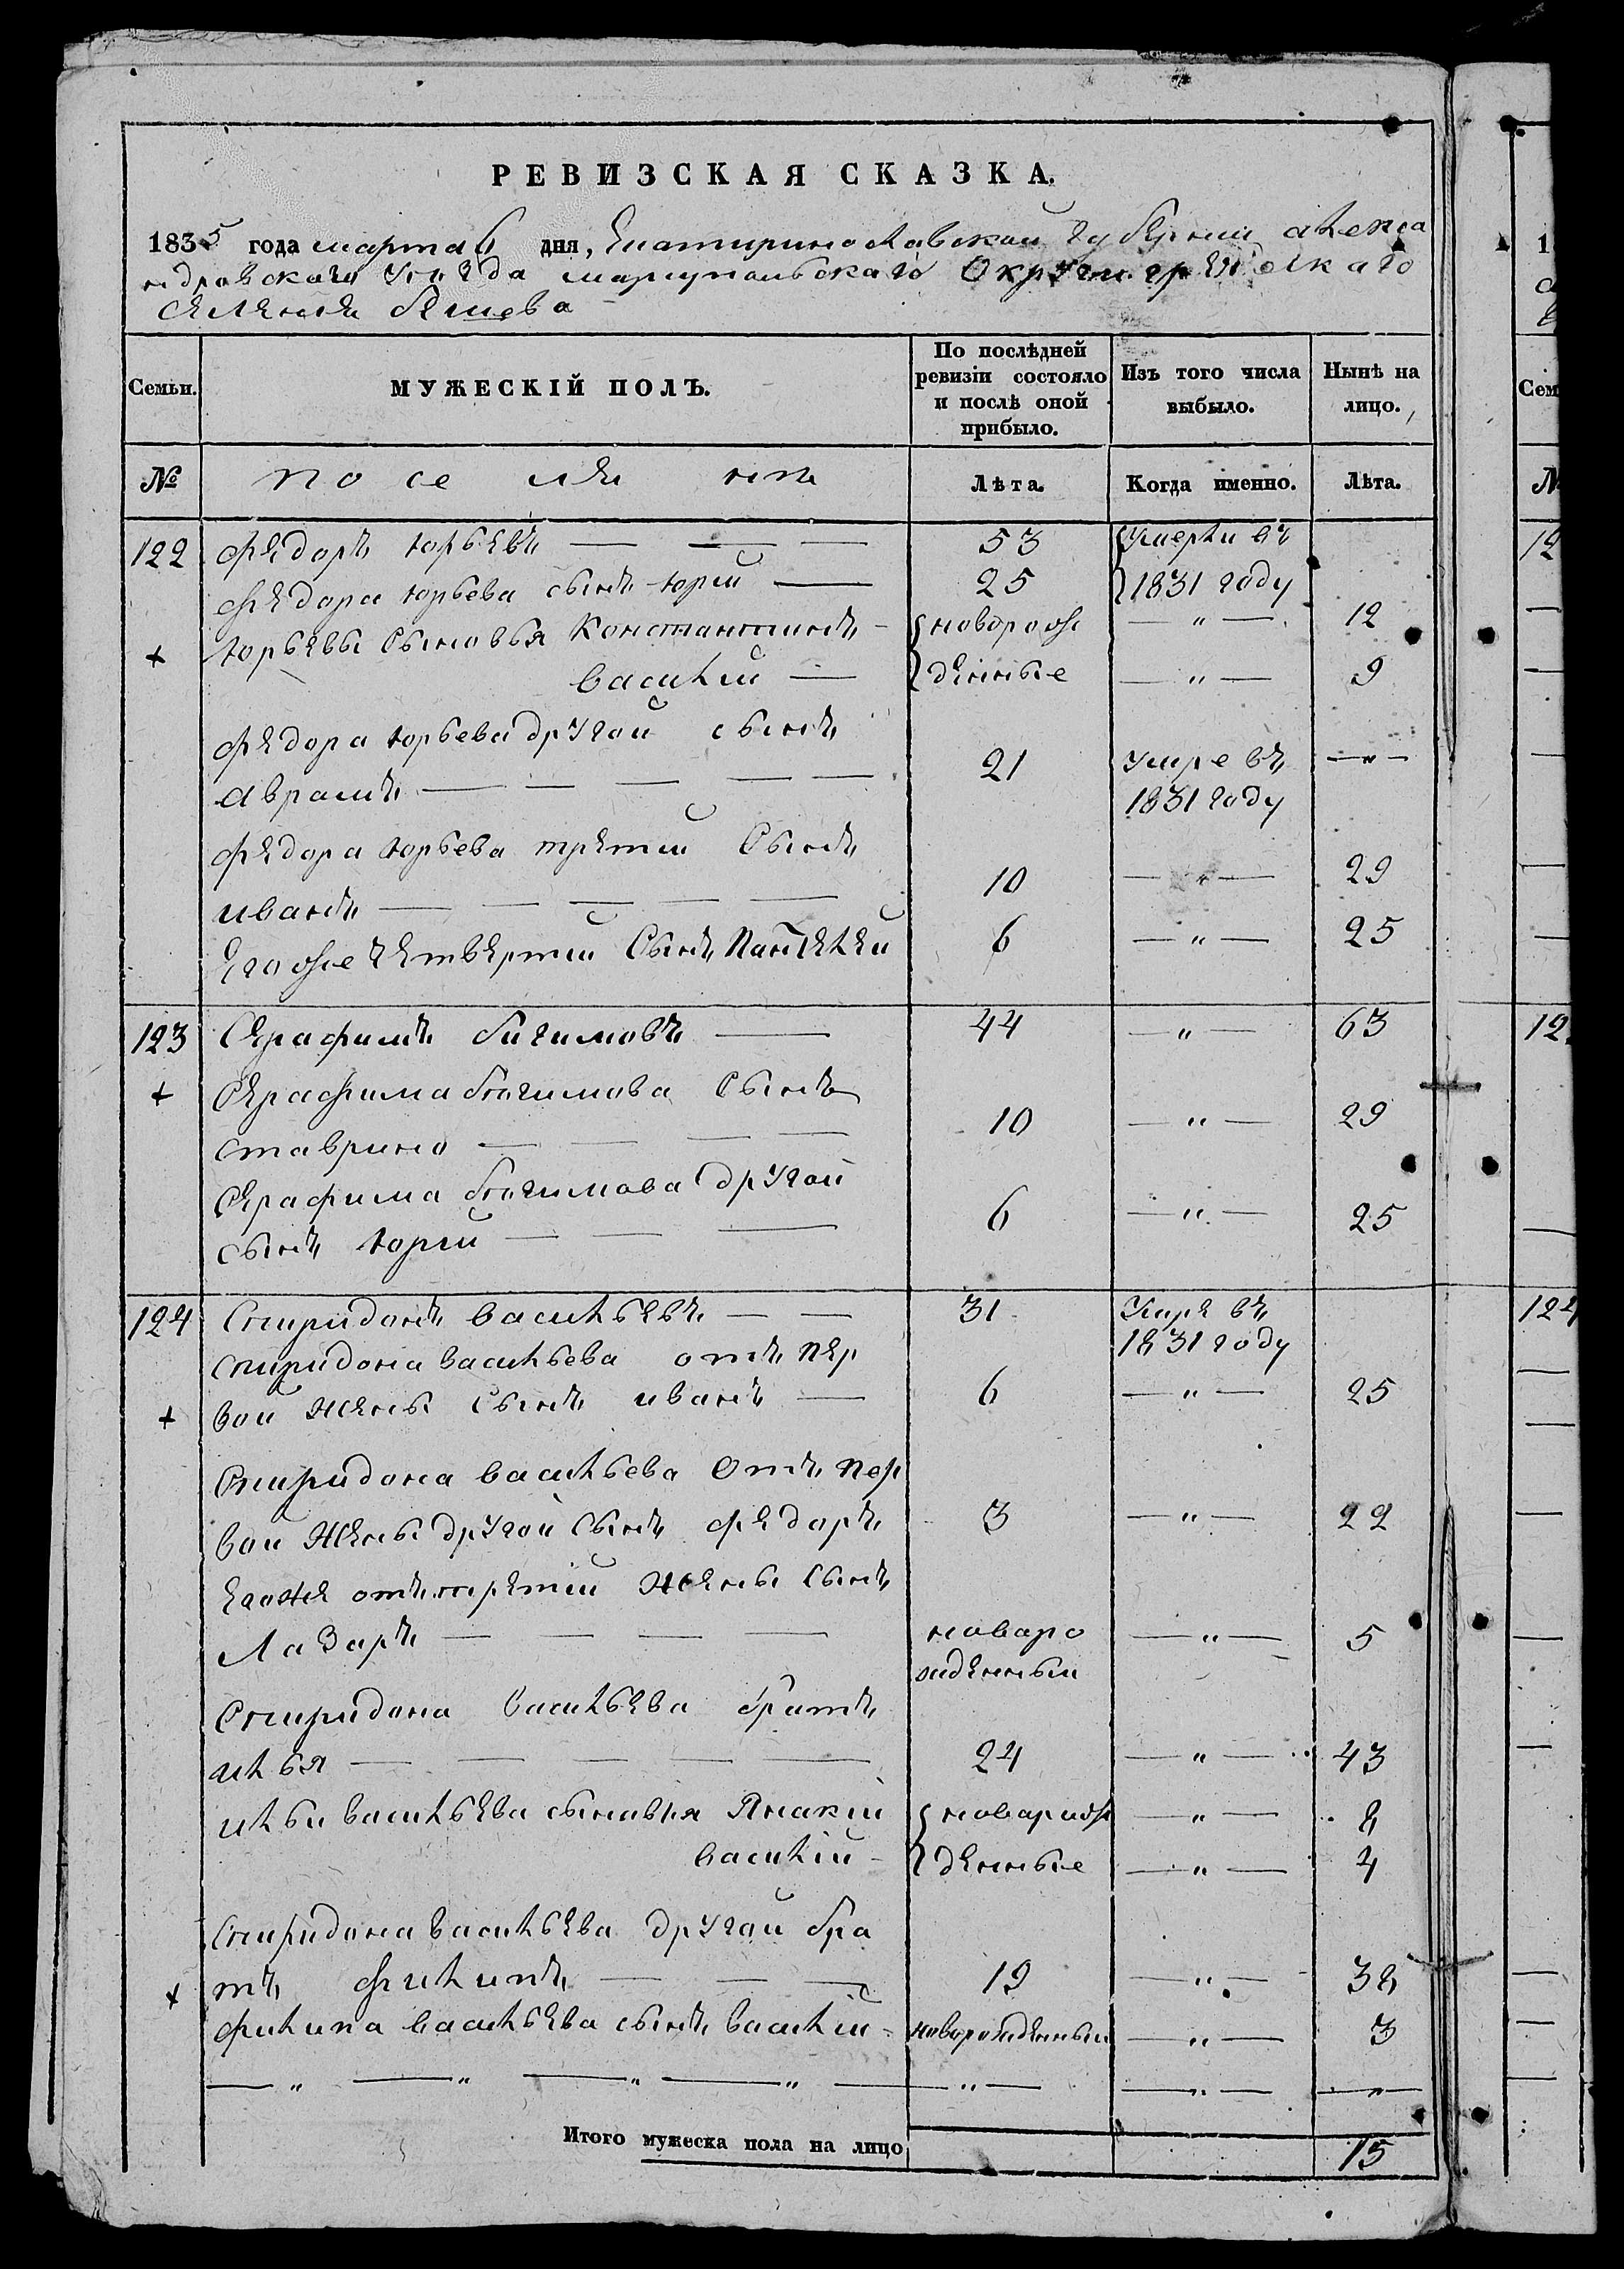 РЕВИЗСКАЯ СКАЗКА.
1835 года марта 6 дня, Екатиринославской губернии алекса
ндровскаго уезда мариупольского Округи греческаго
селения бешева
Семьи. МУЖЕСКІЙ ПОЛЪ. По послѣдней ревизіи состояло и послѣ оной прибыло. Изъ того числа выбыло. Нынѣ на лицо.
№ поселяни Лѣта. Когда именно. Лѣта.
122 федоръ юрьевъ — — — 53 умерли въ
федора юрьева сынъ юрий — 25 1831 году
+ юрьевы сыновья константинъ - новорож — " — 12
василий — денные — " — 9
федора юрьева другой сынъ
аврамъ — — — — — 21 умре въ — " —
1831 году
федора юрьева третий сынъ
иванъ — — — — — 10 — " — 29
егоже четвертий сынъ пантелей 6 — " — 25
123 серафимъ бичимовъ — 44 — " — 63
+ серафима бичимова сынъ
ставрино — — — — 10 — " — 29
серафима бичимова другой
сынъ юрий — — — 6 — " — 25
124 спиридонъ васильевъ — — 31 умре въ
1831 году
спиридона васильева отъ пер
+ вой жены сынъ иванъ — 6 — " — 25
спиридона васильева отъ пер
вой жены другой сынъ федоръ 3 — " — 22
егоже отъ третий жены сынъ
лазаръ — — — — новаро — " — 5
жденный
спиридона васильева братъ
илья — — — — — 24 — " — 43
ильи васильева сынавья васкій новарож — " — 8
василий - денные — " — 4
спиридона васильева другой бра
+ тъ филипъ — — — 19 — " — 38
филипа васильева сынъ василий - новорожденный — " — 3
— " — " — " — " — " — — " — — " —
Итого мужеска пола на лицо 15